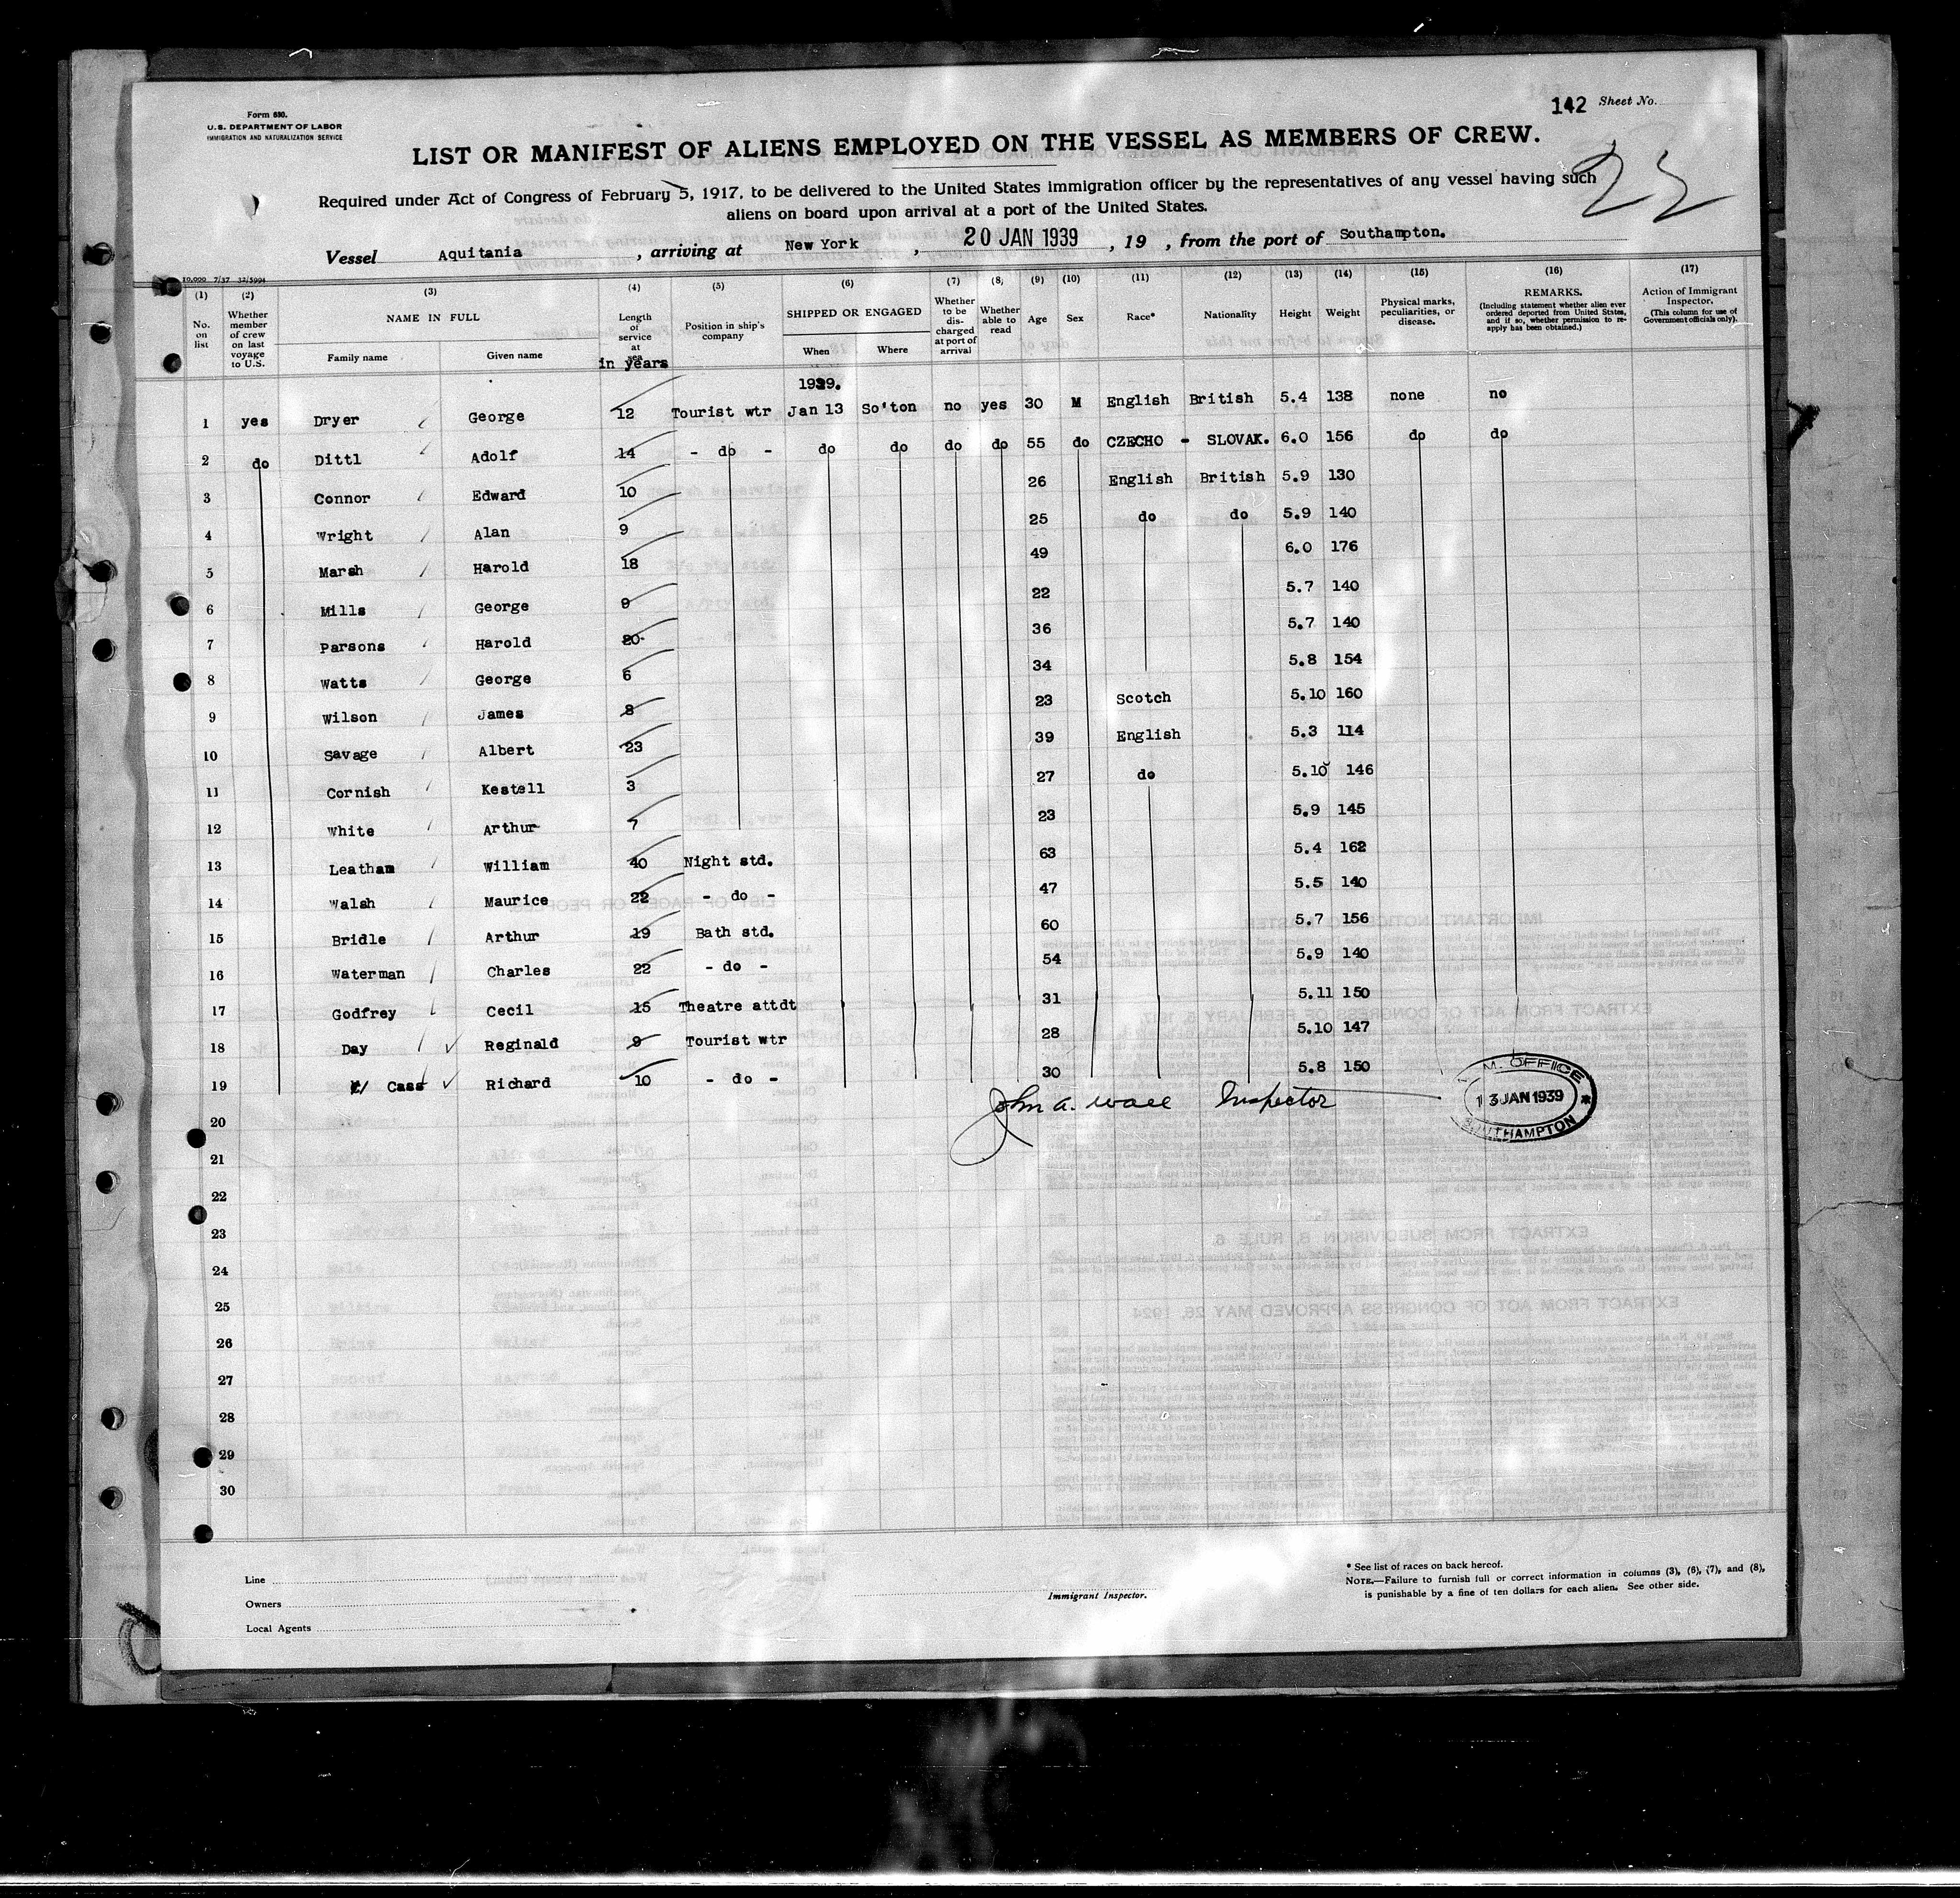 142 Sheet No.
Form 680.
U.S. DEPARTMENT OF LABOR
IMMIGRATION AND NATURALIZATION SERVICE
LIST OR MANIFEST OF ALIENS EMPLOYED ON THE VESSEL AS MEMBERS OF CREW.
22
Required under Act of Congress of February 5, 1917, to be delivered to the United States immigration officer by the representatives of any vessel having such
aliens on board upon arrival at a port of the United States.
Vessel Aquitania, arriving at New York, 20 JAN 1939, 19 , from the port of Southampton.
10,000 7/37 32/5994
(1) (2) (3) (4) (5) (6) (7) (8) (9) (10) (11) (12) (13) (14) (15) (16) (17)
No. on list
Whether member of crew on last voyage to U.S.
NAME IN FULL
Family name Given name
Length of service at sea
in years
Position in ship's company
SHIPPED OR ENGAGED
When Where
Whether to be discharged at port of arrival
Whether able to read
Age
Sex
Race*
Nationality
Height
Weight
Physical marks, peculiarities, or disease.
REMARKS.
(Including statement whether alien ever ordered deported from United States, and if so, whether permission to reapply has been obtained.)
Action of Immigrant Inspector.
(This column for use of Government officials only).
1939.
1 yes Dryer George 12 Tourist wtr Jan 13 So'ton no yes 30 M English British 5.4 138 none no
2 do Dittl Adolf 14 - do - do do do do 55 do CZECHO - SLOVAK. 6.0 156 do do
3 Connor Edward 10 26 English British 5.9 130
4 Wright Alan 9 25 do do 5.9 140
5 Marsh Harold 18 49 6.0 176
6 Mills George 9 22 5.7 140
7 Parsons Harold 20 36 5.7 140
8 Watts George 6 34 5.8 154
9 Wilson James 8 23 Scotch 5.10 160
10 Savage Albert 23 39 English 5.3 114
11 Cornish Kestell 3 27 do 5.10 146
12 White Arthur 7 23 5.9 145
13 Leatham William 40 Night std. 63 5.4 162
14 Walsh Maurice 22 - do - 47 5.5 140
15 Bridle Arthur 19 Bath std. 60 5.7 156
16 Waterman Charles 22 - do - 54 5.9 140
17 Godfrey Cecil 15 Theatre attdt 31 5.11 150
18 Day Reginald 9 Tourist wtr 28 5.10 147
19 Cass Richard 10 - do - 30 5.8 150
John A. Wall Inspector
M. OFFICE
13 JAN 1939 *
SOUTHAMPTON
20
21
22
23
24
25
26
27
28
29
30
Line
Owners
Local Agents
Immigrant Inspector.
* See list of races on back hereof.
NOTE.—Failure to furnish full or correct information in columns (3), (6), (7), and (8),
is punishable by a fine of ten dollars for each alien. See other side.